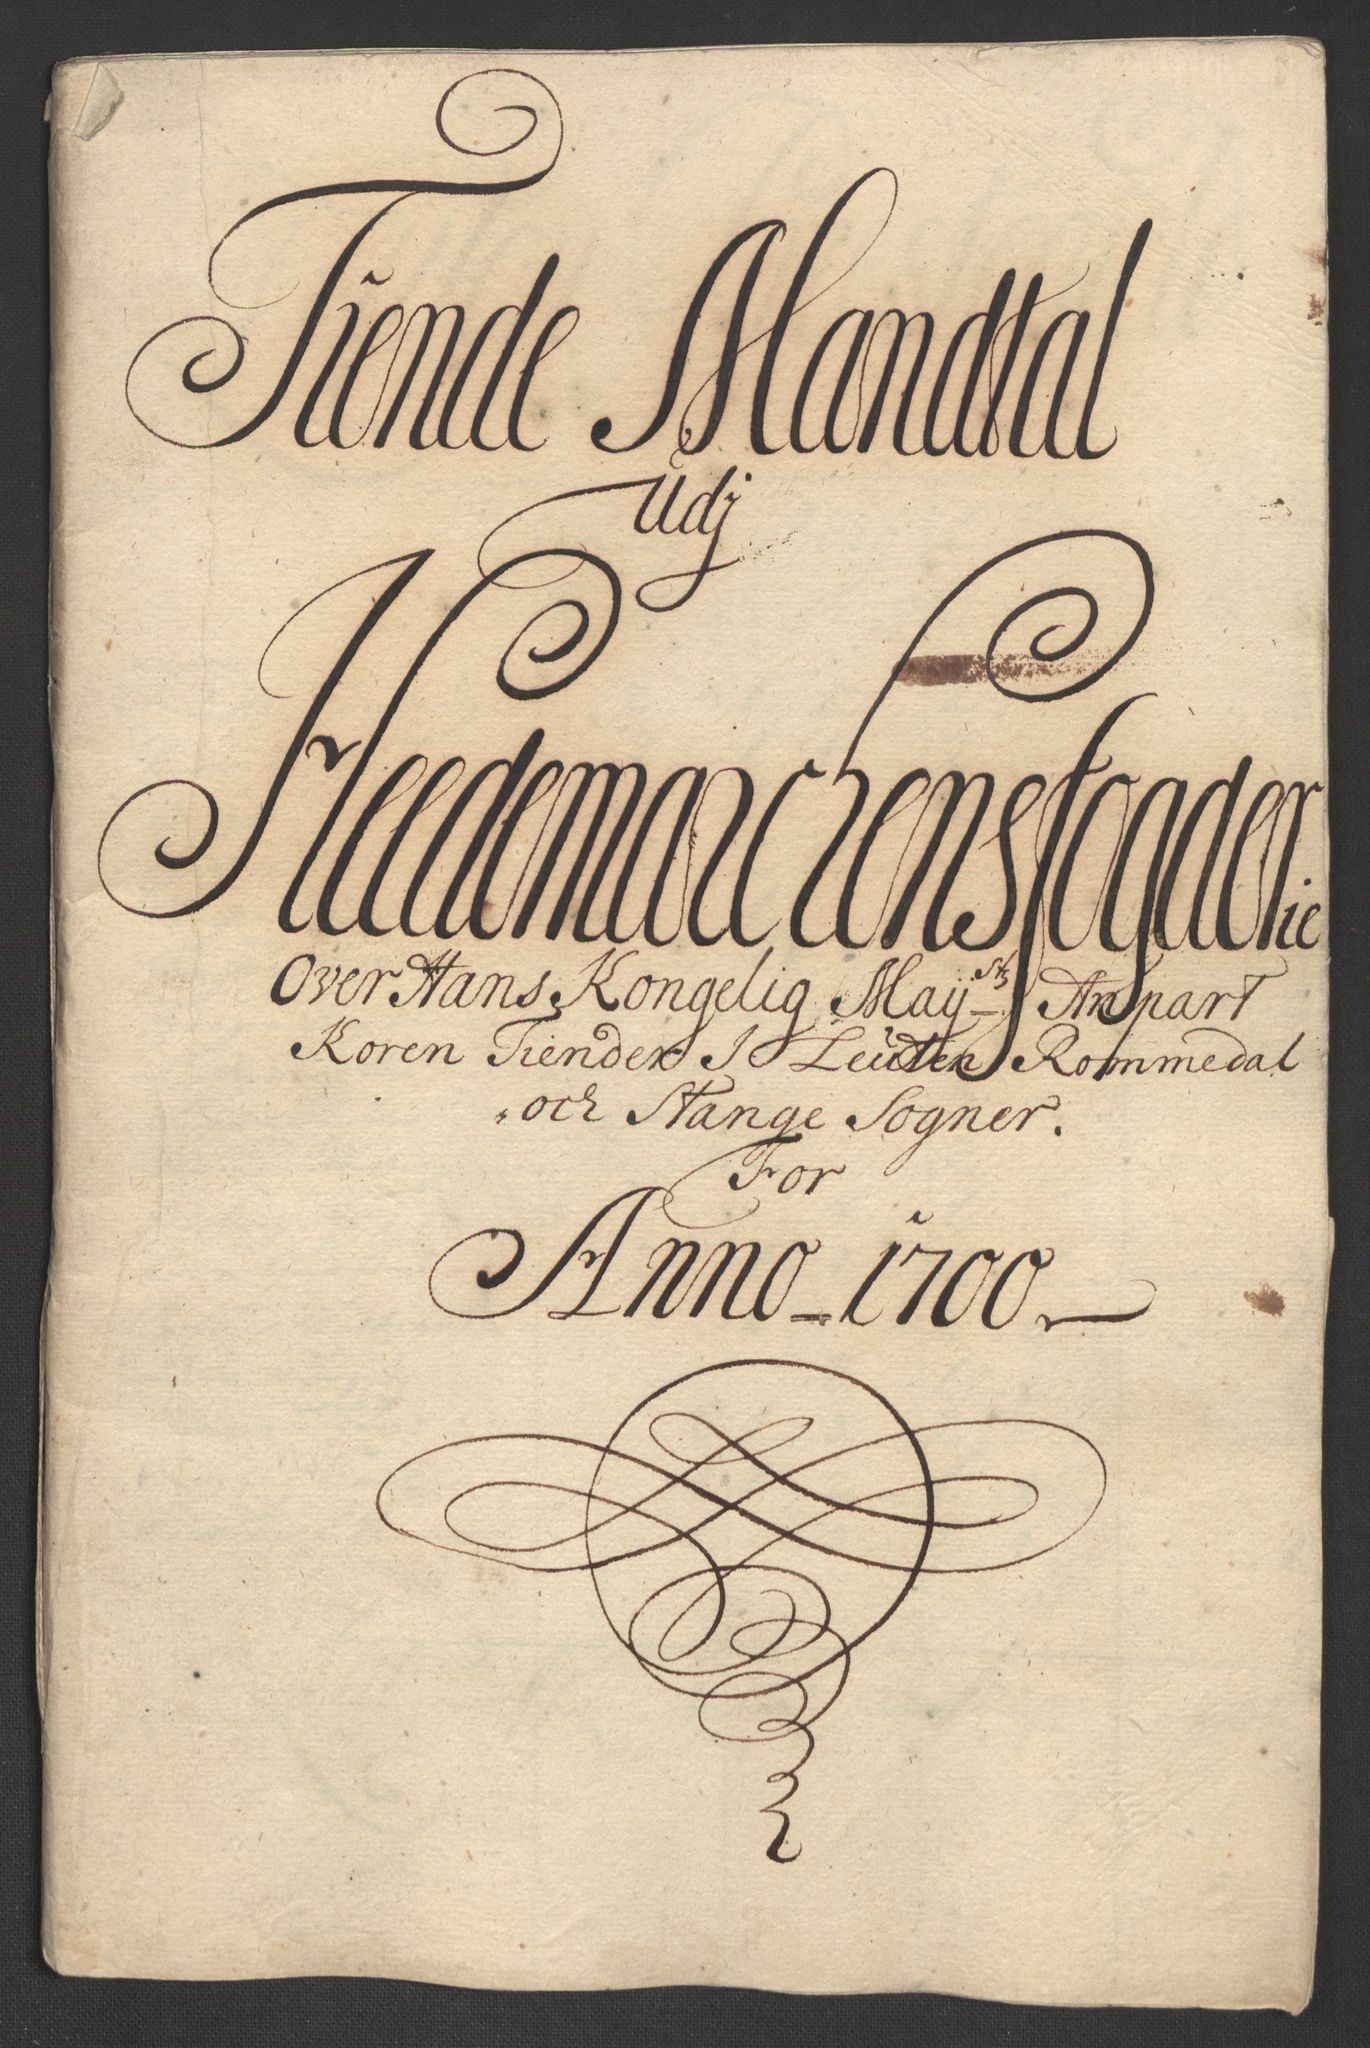 Tiende Mandtal
Udj
Heedemarchens fogderie
Over Hans Kongelig May:sts Anpart
Koren Tiender I Leuten Rommedal
och Stange Sogner.
For
Anno 1700